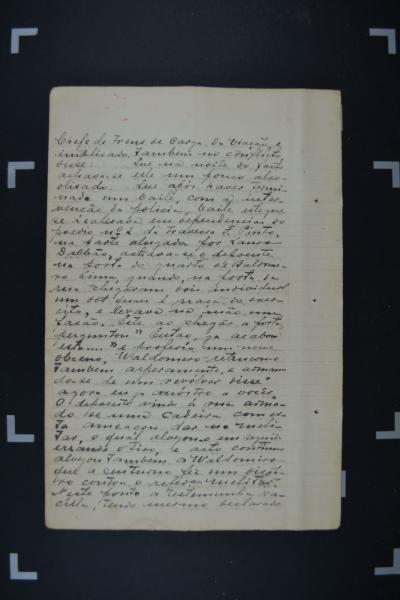 Chefe de Trens de Carga da Viação, e
implicado tambem no conflicto
disse: Que na noite do facto
achava-se elle um pouco alco-
olisado. Que após haver termi-
nado um baile, com a inter-
venção da policia, baile esse que
se realisava em dependencias do
predio nº 2 da Travessa E. Pinto,
na parte alugada por Lauro
Dalbão, achava-se o depoente
na porta do quarto de Baldome-
ro Lima, quando, na porta da
rua chegaram dois individuos
um dos quaes é praça do exer-
cito, e levava na mão um
facão. Este ao chegar a porta
perguntou "Então, já acabou
esta...." e proferiu um nome
obceno, Waldomero retrucou
tambem asperamente, e arman-
do-se de um revolver disse
agora eu ja mostro a vocês.
O depoente vindo á rua arma-
do de uma cadeira com es-
ta ameaçou dar no mili-
tar, o qual alvejou-o em seguida
errando o tiro, e acto continuo
alvejou tambem a Waldomiro
que a seu turno fez um dispa-
ro contra o referido militar.
Neste ponto a testemunha va-
cilla, tendo mesmo declarado